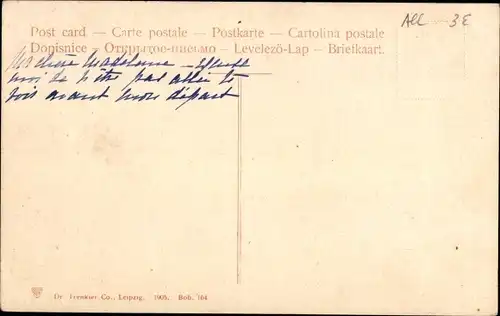 All — 3€
Post card — Carte postale — Postkarte — Cartolina postale
Dopisnice — Открытое письмо — Levelezö-Lap — Briefkaart.
Ma chère Madeleine
moi de n'être pas allée te
voir avant mon départ
Dr. Trenkler Co., Leipzig. 1905. Bob. 164